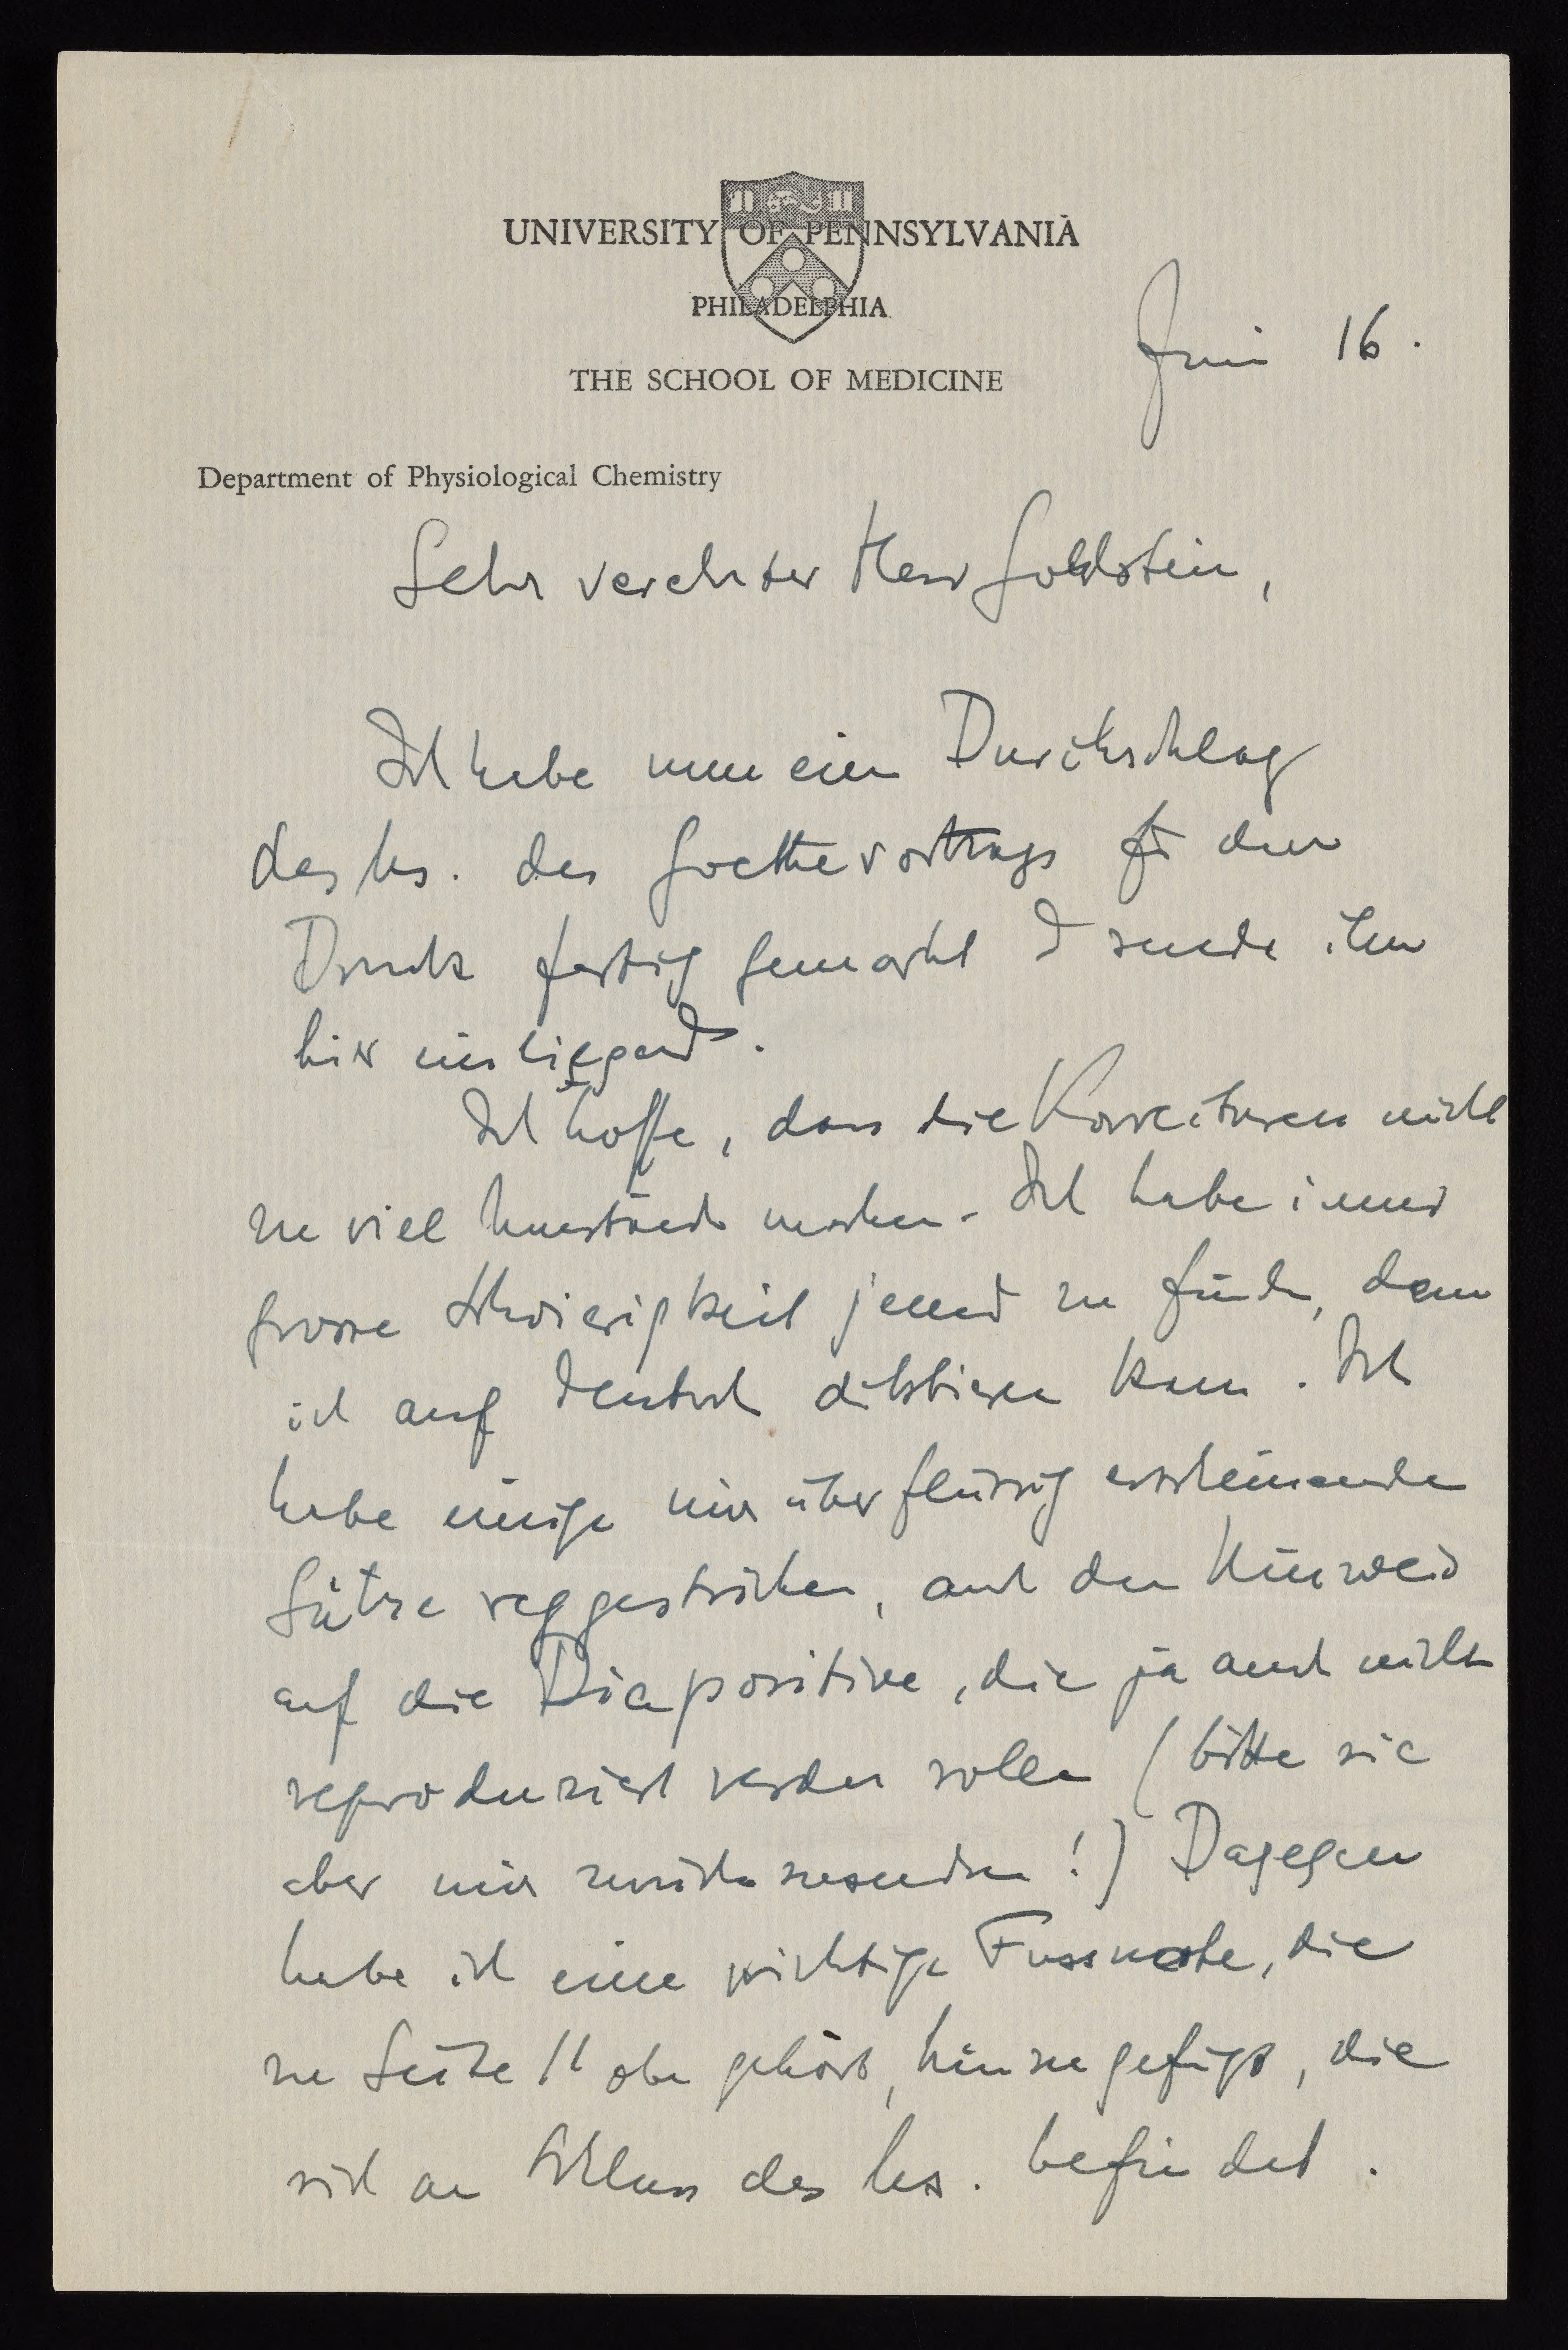 UNIVERSITY OF PENNSYLVANIA
PHILADELPHIA
THE SCHOOL OF MEDICINE
Juni 16.
Department of Physiological Chemistry
Sehr verehrter Herr Goldstein,
Ich habe nun einen Durchschlag
des Ms. des Goethevortrags für den
Druck fertig gemacht & sende ihn
hier einliegend.
Ich hoffe, dass die Korrekturen nicht
zu viel Umstände machen. Ich habe immer
grosse Schwierigkeit jemand zu finden, dem
ich auf deutsch diktieren kann. Ich
habe einige mir überflüssig erscheinende
Sätze weggestrichen, auch den Hinweis
auf die Diapositive, die ja auch nicht
reproduziert werden sollen (bitte sie
aber mir zurückzusenden!) Dagegen
habe ich eine wichtige Fussnote, die
zu Seite 11 oben gehört, hinzugefügt, die
sich am Schluss des Ms. befindet.